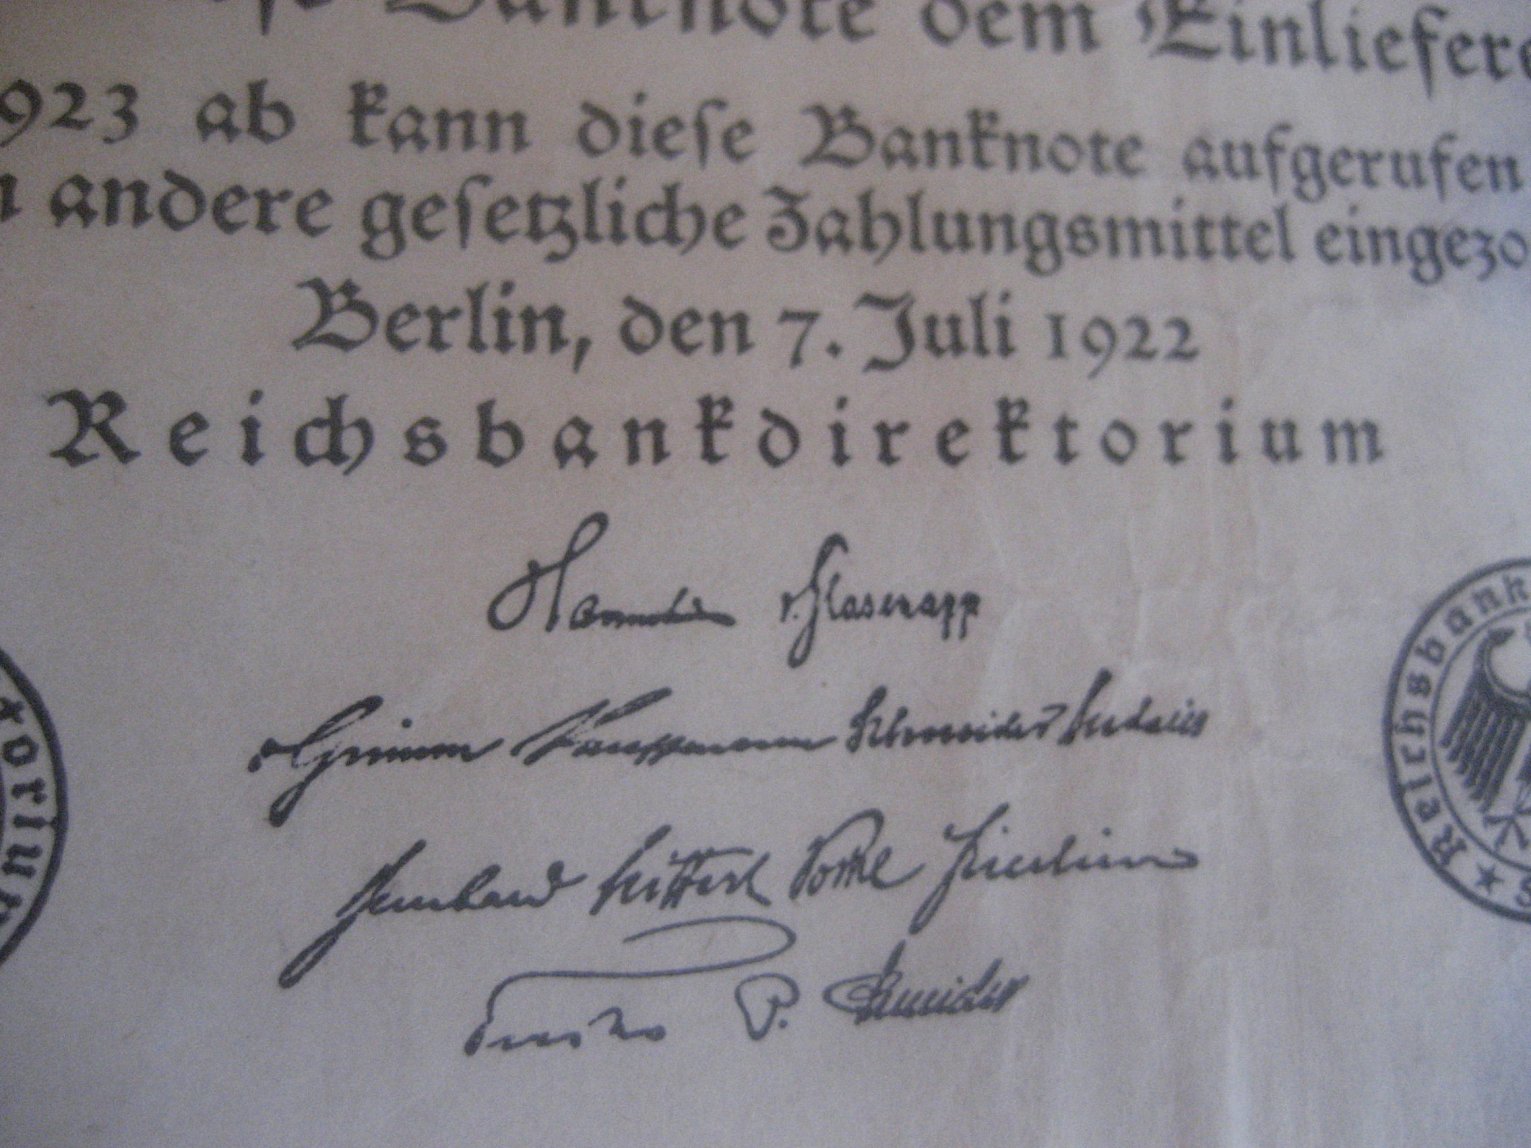 Banknote dem Einliefere
923 ab kann diese Banknote aufgerufen
andere gesetzliche Zahlungsmittel eingezo
Berlin, den 7. Juli 1922
Reichsbankdirektorium
v. Glasenapp
Grimm Kauffmann Schneider Budczies
Bernhard Seiffert Vocke Friedrich
P. Schneider
torium
Reichsbank